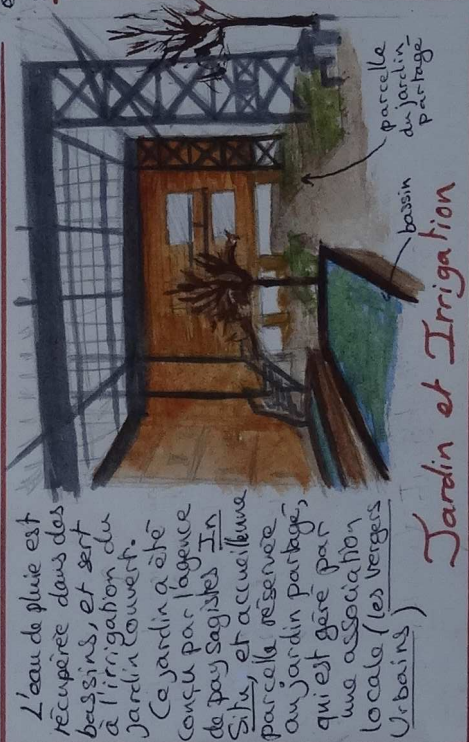 L'eau de pluie est
récupérée dans des
bassins, et sert
à l'irrigation du
jardin couvert.
Ce jardin a été
conçu par l'agence
de paysagistes In
Situ, et accueille une
parcelle réservée
au jardin partagé,
qui est géré par
une association
locale (les Vergers
Urbains)
parcelle
du jardin
partagé
bassin
Jardin et Irrigation